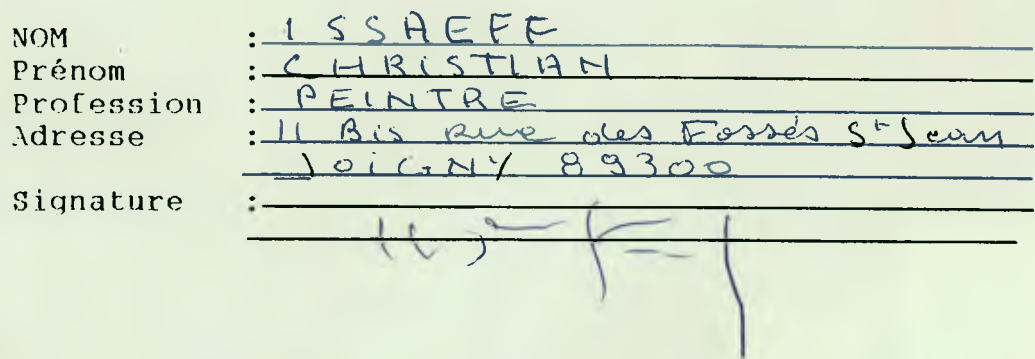 NOM : ISSAEFF
Prénom : CHRISTIAN
Profession : PEINTRE
Adresse : 11 Bis Rue des Fossés St Jean
JOIGNY 89300
Signature :